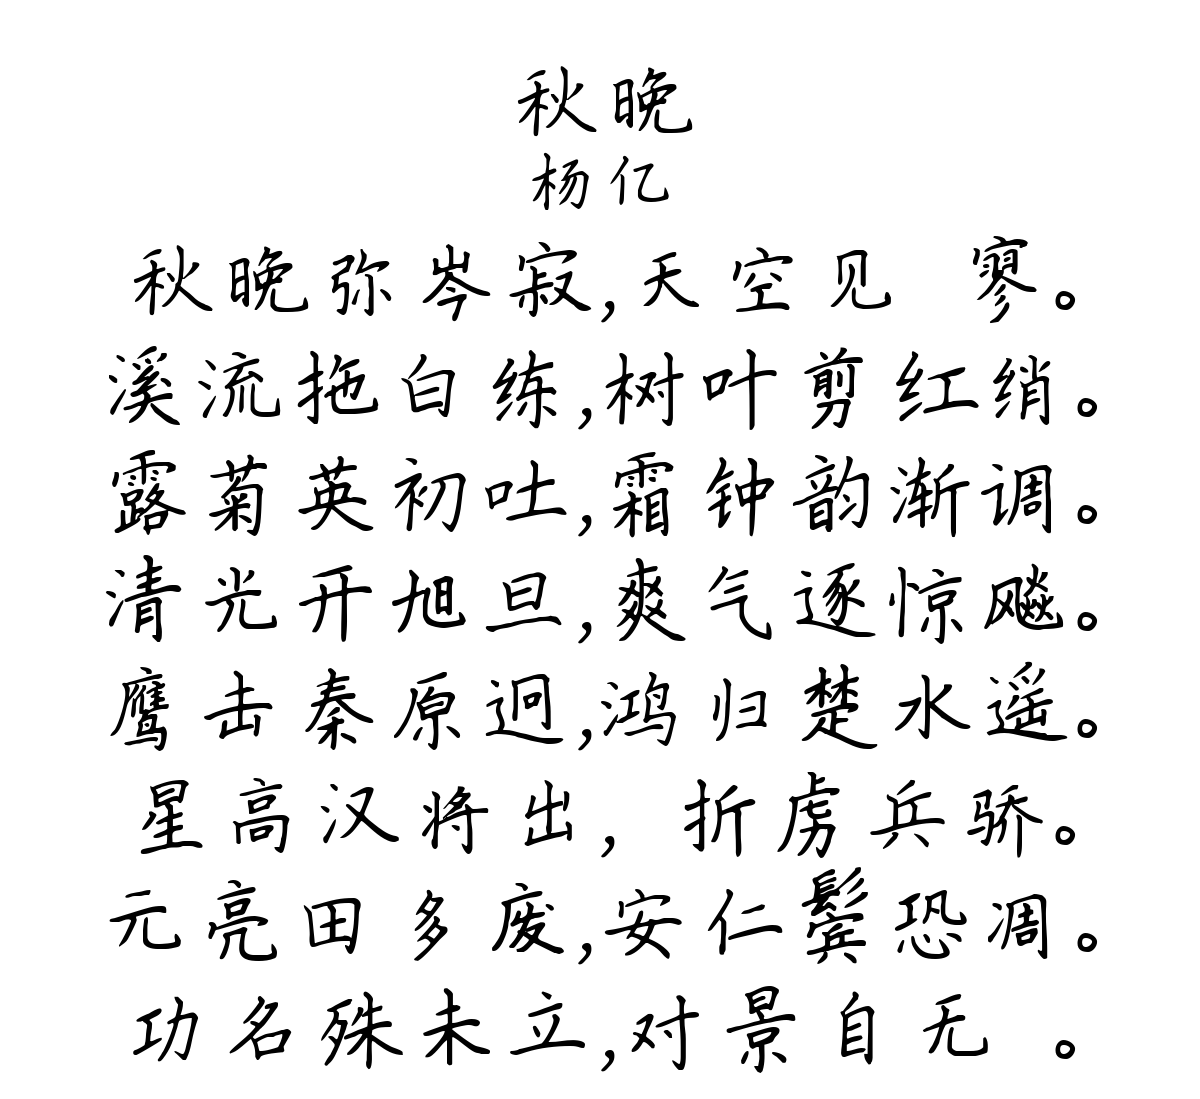 秋晚
杨亿
秋晚弥岑寂,天空见 寥。
溪流拖白练,树叶剪红绡。
露菊英初吐,霜钟韵渐调。
清光开旭旦,爽气逐惊飚。
鹰击秦原迥,鸿归楚水遥。
星高汉将出,折虏兵骄。
元亮田多废,安仁鬓恐凋。
功名殊未立,对景自无 。